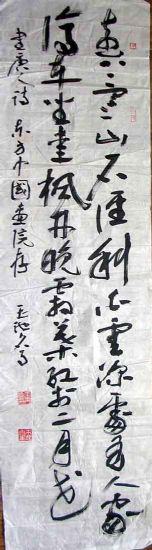 遠上寒山石徑斜白雲深處有人家
停車坐愛楓林晚霜葉紅於二月花
書唐人詩 东方中國畫院存